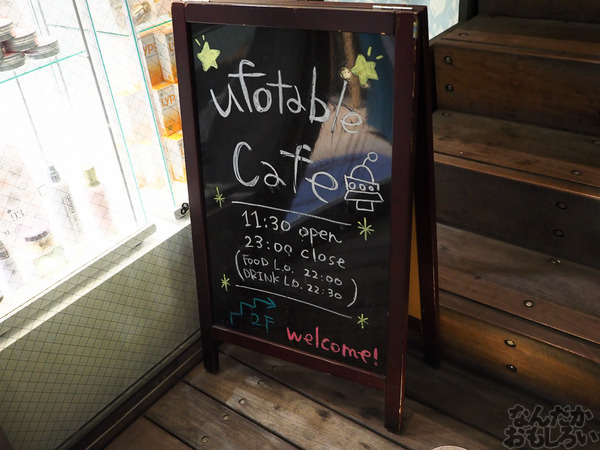 ufotable
Cafe
11:30 open
23:00 close
(FOOD L.O. 22:00
DRINK L.O. 22:30)
2F
welcome!
なんだか
おもしろい